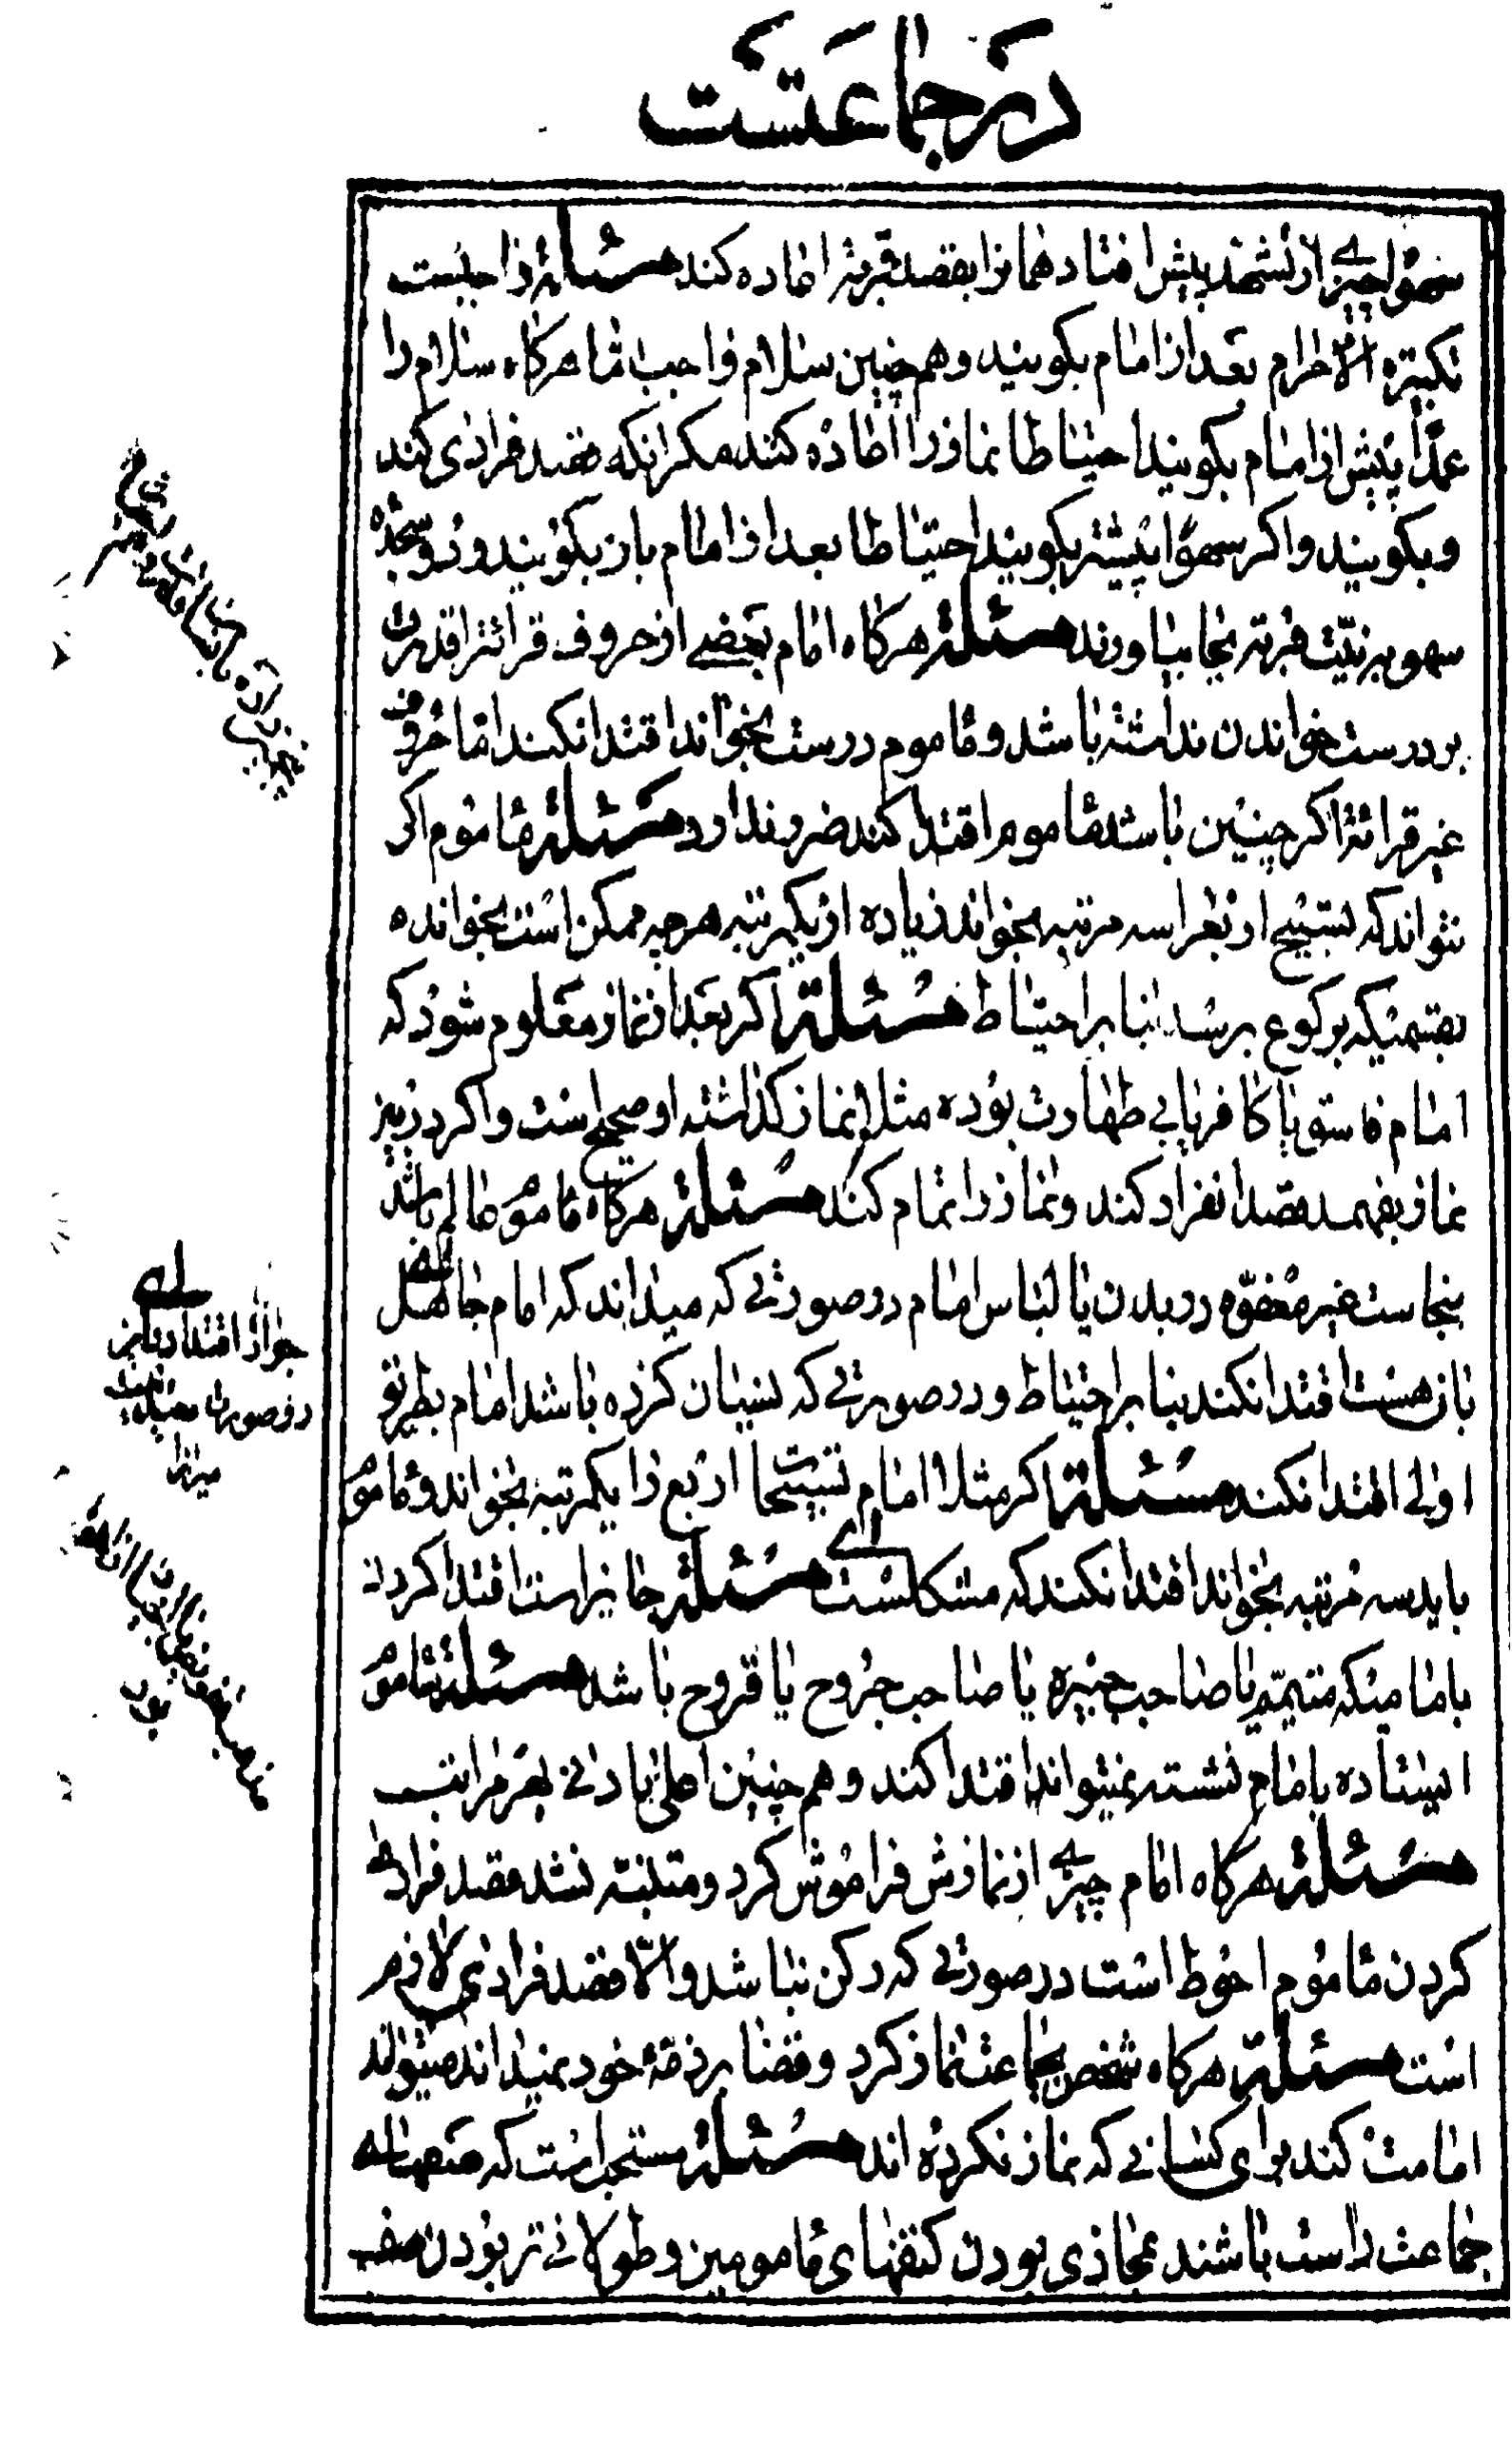 در جماعتست
سهوا چیزی از تشهد پیش افتاد همانرا بقصد قربة اعاده کند مسئلة واجبست
تکبیرة الاحرام بعد از امام بگویند و هم چنین سلام واجب اما هرگاه سلام را
عمدا پیش از امام بگویند احتیاطا نماز را اعاده کنند مگر انکه قصد فرادی کند
و بگویند و اگر سهوا پیشتر بگویند احتیاطا بعد از امام باز بگویند و دو سجده
سهو بر نیت قربة بجا بیاورند مسئلة هرگاه امام بعضی از حروف قرائترا قدرت
بر درست خواندن نداشته باشد و ماموم درست بخواند اقتدا نکند اما حروف
غیر قرائترا اگر چنین باشد ماموم اقتدا کند ضرر ندارد مسئلة ماموم اگر
نتواند که تسبیح اربعرا سه مرتبه بخواند زیاده از یکمرتبه هرچه ممکن است بخوانده
بقسمیکه برکوع برسد بنا بر احتیاط مسئلة اگر بعد از نماز معلوم شود که
امام فاسق یا کافر یا بی طهارت بوده مثلا نماز گذاشته او صحیح است و اگر در بین
نماز بفهمد قصد انفراد کند و نماز را تمام کند مسئلة هرگاه ماموم عالم باشد
بنجاست غیر معفوه در بدن یا لباس امام در صورتی که میداند که امام جاهل
بان هست اقتدا نکند بنا بر احتیاط و در صورتی که نسیان کرده باشد امام بطریق
اولی اقتدا نکند مسئلة اگر مثلا امام تسبیحات اربع را یکمرتبه بخواند و ماموم
باید سه مرتبه بخواند اقتدا نکند که مشکلست مسئلة جایز است اقتدا کردن
بامامیکه متیمم یا صاحب جبیره یا صاحب جروح یا قروح باشد مسئلة ماموم
ایستاده بامام نشسته نمیتواند اقتدا کند و هم چنین اعلی بادنی بهر مراتب
مسئلة هرگاه امام چیزی از نمازش فراموش کرد و متنبه نشد قصد فرادی
کردن ماموم احوط است در صورتی که رکن نباشد و الا قصد فرادی لازم
است مسئلة هرگاه شخص بجماعت نماز کرد و قضا بر ذمه خود نمیداند میتواند
امامت کند برای کسانی که نماز نکرده اند مسئلة مستحب است که صفهای
جماعت راست باشند بمحاذی بودن کتفهای مامومین و طولانی تر بودن صف
جواز اقتدا
در صورت
میرزا